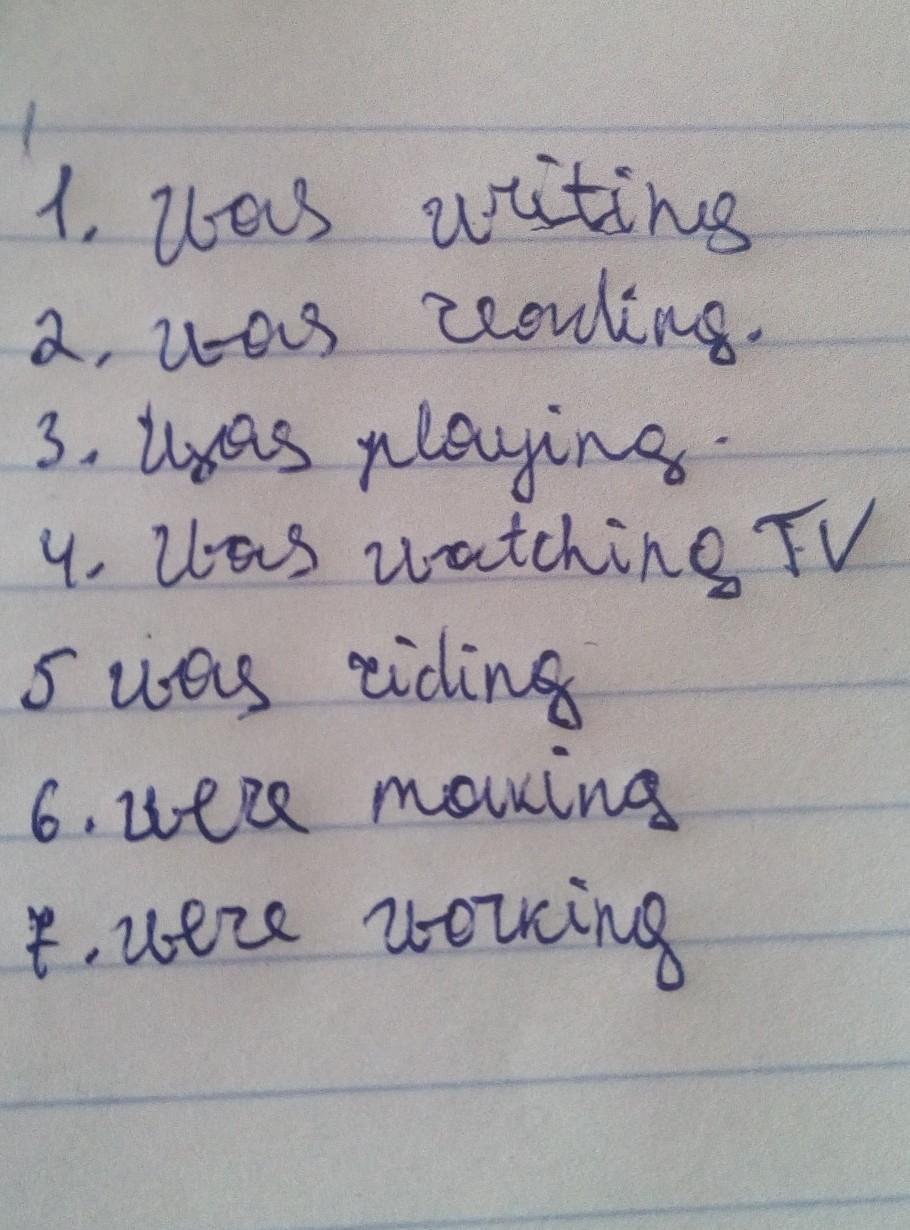 1. Was writing
2. was reading.
3. Was playing.
4. Was watching TV
5 was riding
6. were making
7. were working